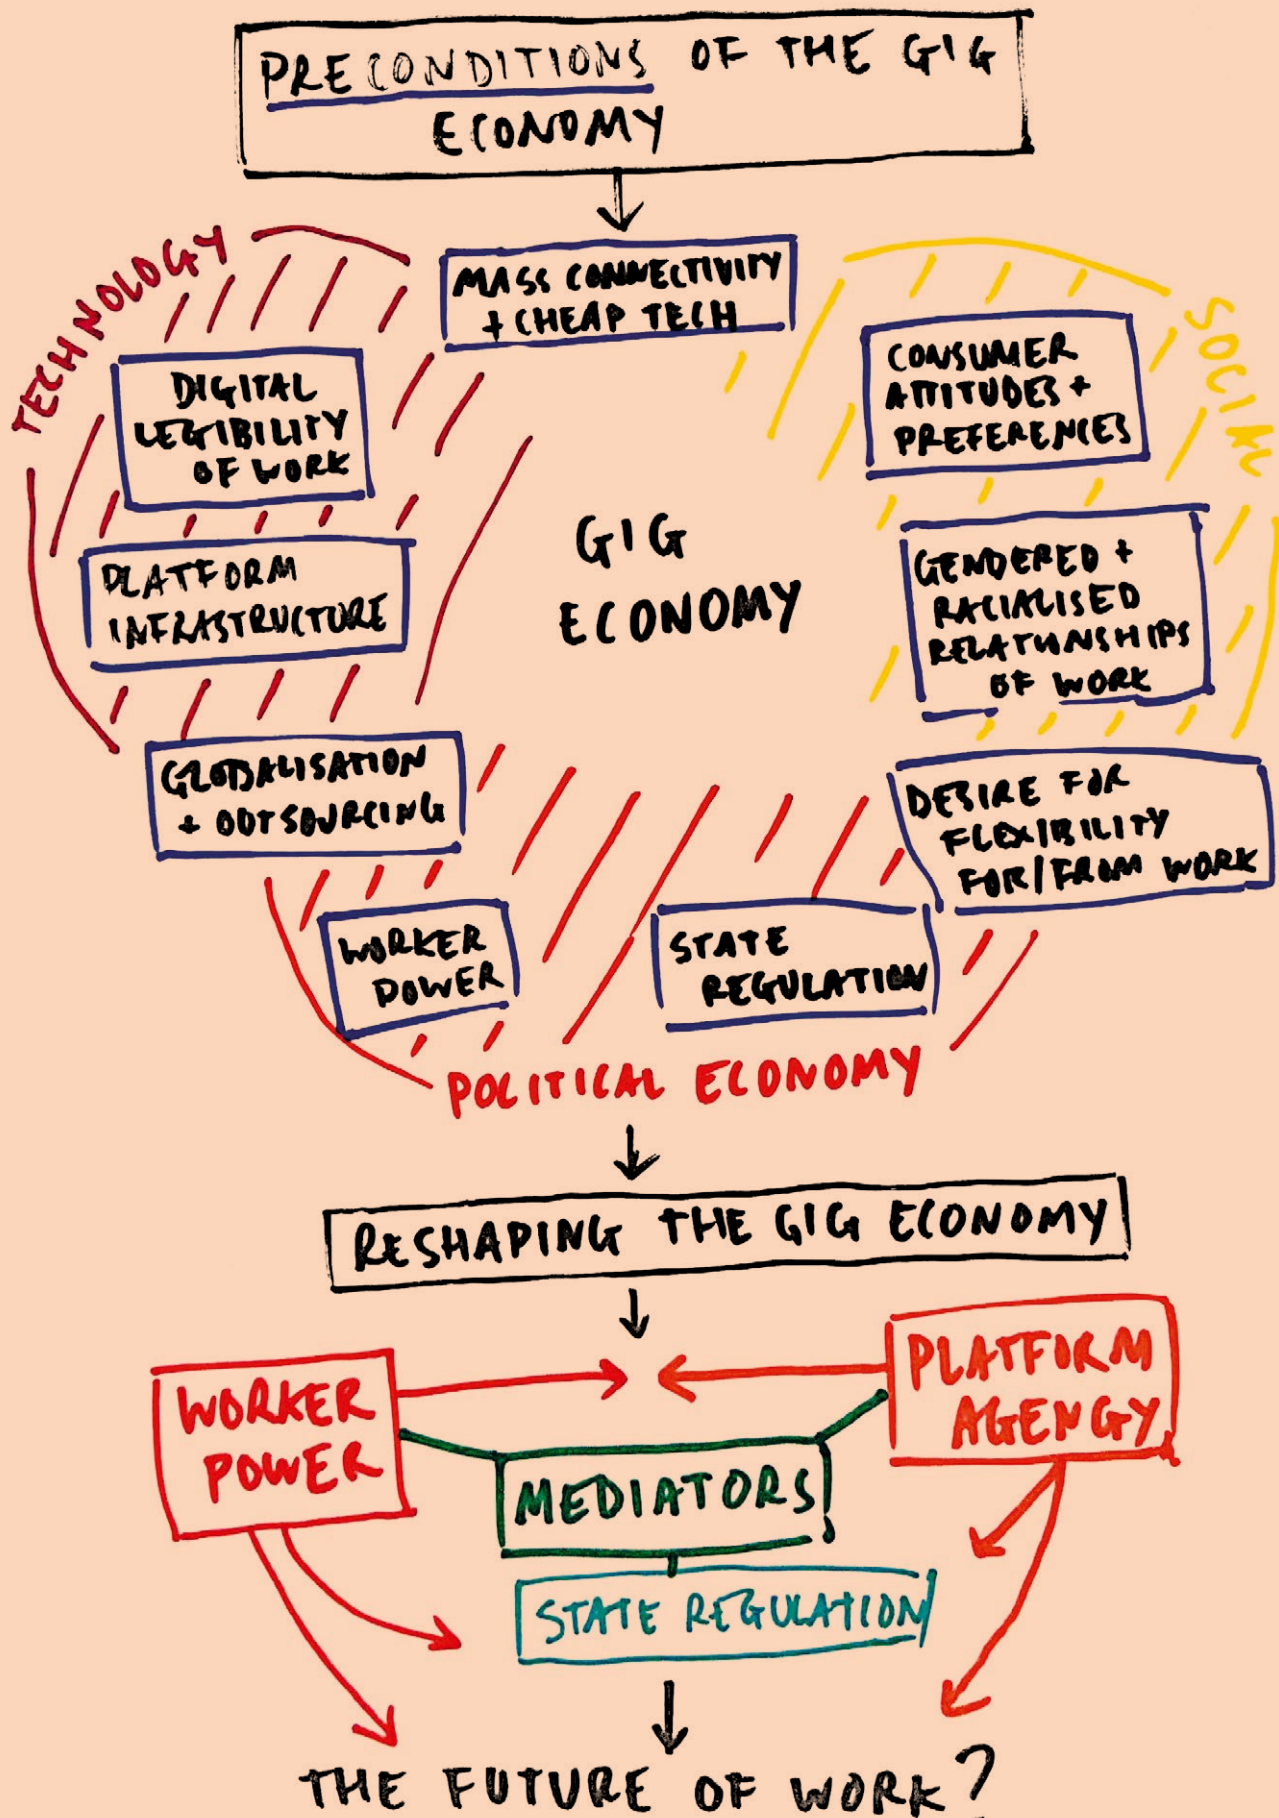 PRECONDITIONS OF THE GIG
ECONOMY
TECHNOLOGY
MASS CONNECTIVITY
+ CHEAP TECH
SOCIAL
DIGITAL
LEGIBILITY
OF WORK
CONSUMER
ATTITUDES +
PREFERENCES
PLATFORM
INFRASTRUCTURE
GIG
ECONOMY
GENDERED +
RACIALISED
RELATIONSHIPS
OF WORK
GLOBALISATION
+ OUTSOURCING
DESIRE FOR
FLEXIBILITY
FOR/FROM WORK
WORKER
POWER
STATE
REGULATION
POLITICAL ECONOMY
RESHAPING THE GIG ECONOMY
WORKER
POWER
PLATFORM
AGENCY
MEDIATORS
STATE REGULATION
THE FUTURE OF WORK?